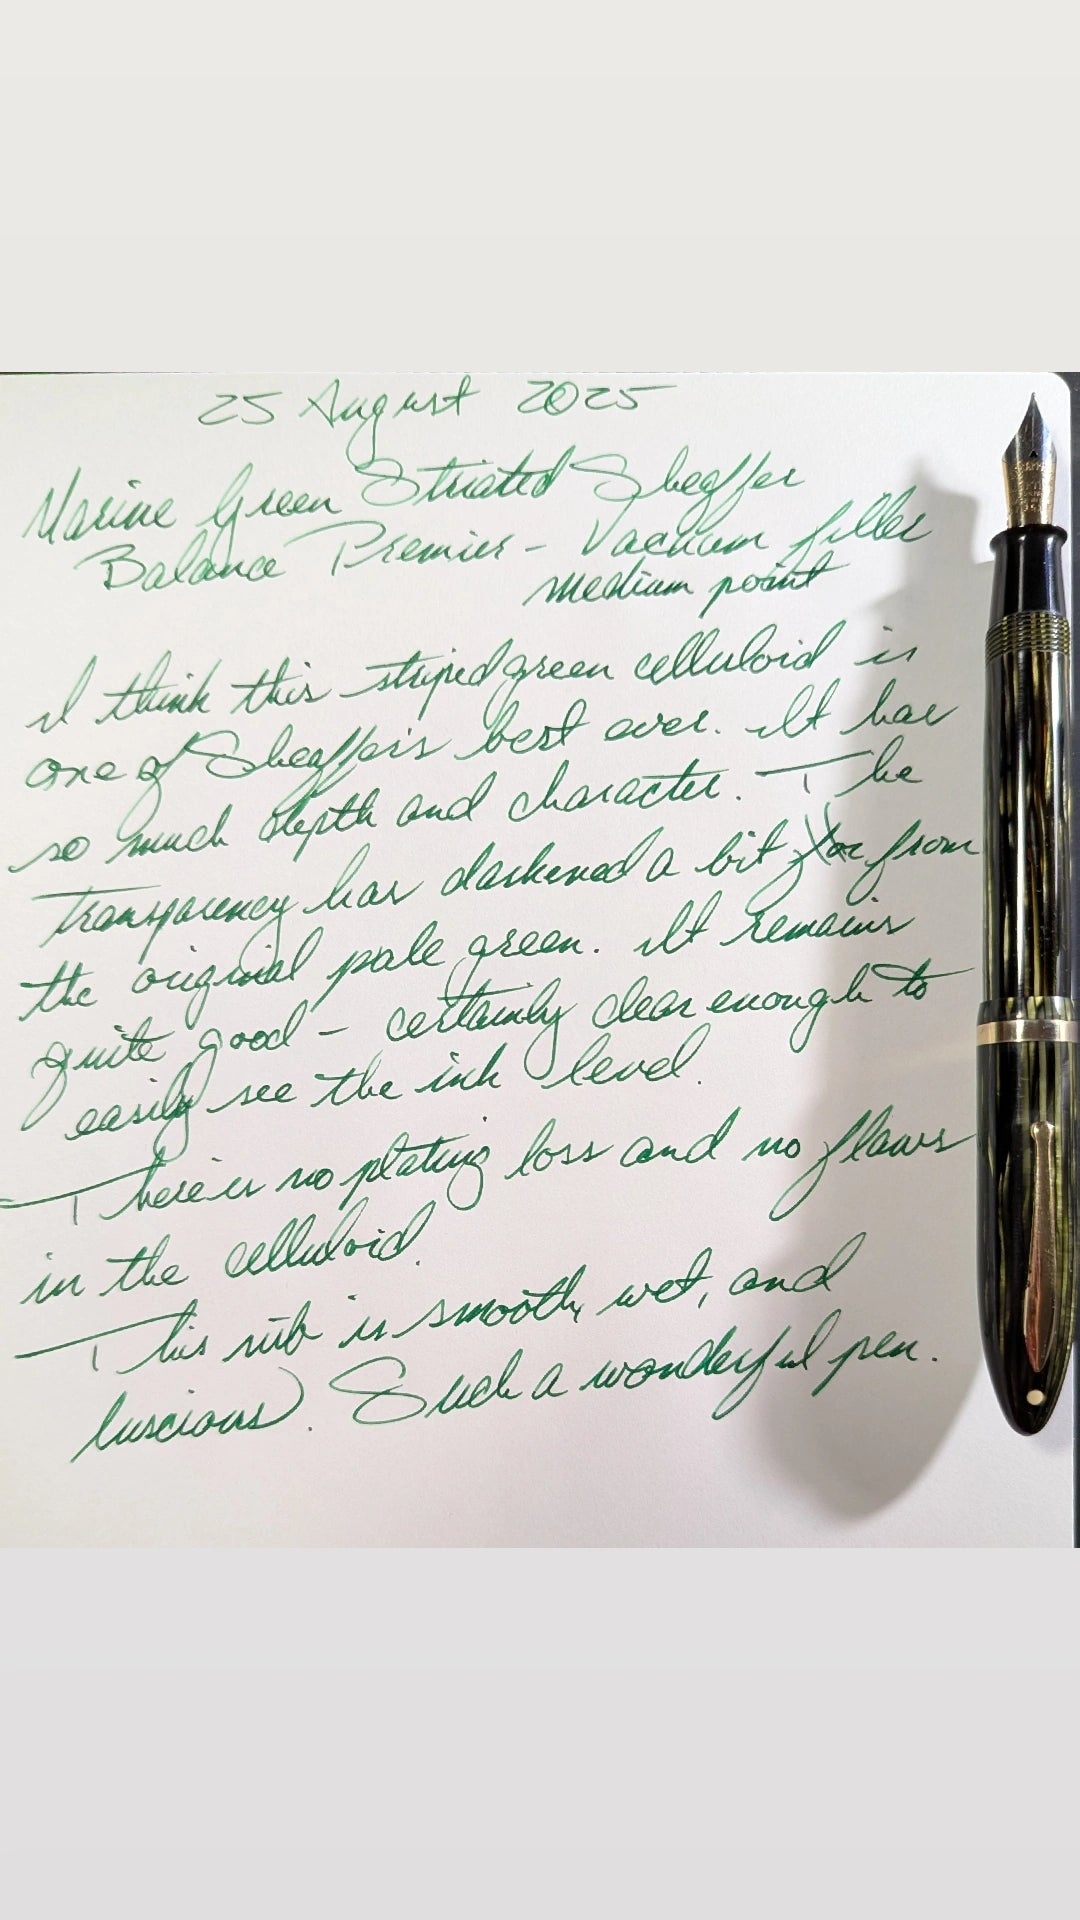 25 August 2025
Marine Green Striated Sheaffer
Balance Premier - Vacuum filler
medium point
I think this striped green celluloid is
one of Sheaffer's best ever. It has
so much depth and character. The
transparency has darkened a bit from
the original pale green. It remains
quite good - certainly clear enough to
easily see the ink level.
There is no plating loss and no flaws
in the celluloid.
This nib is smooth, wet, and
luscious. Such a wonderful pen.